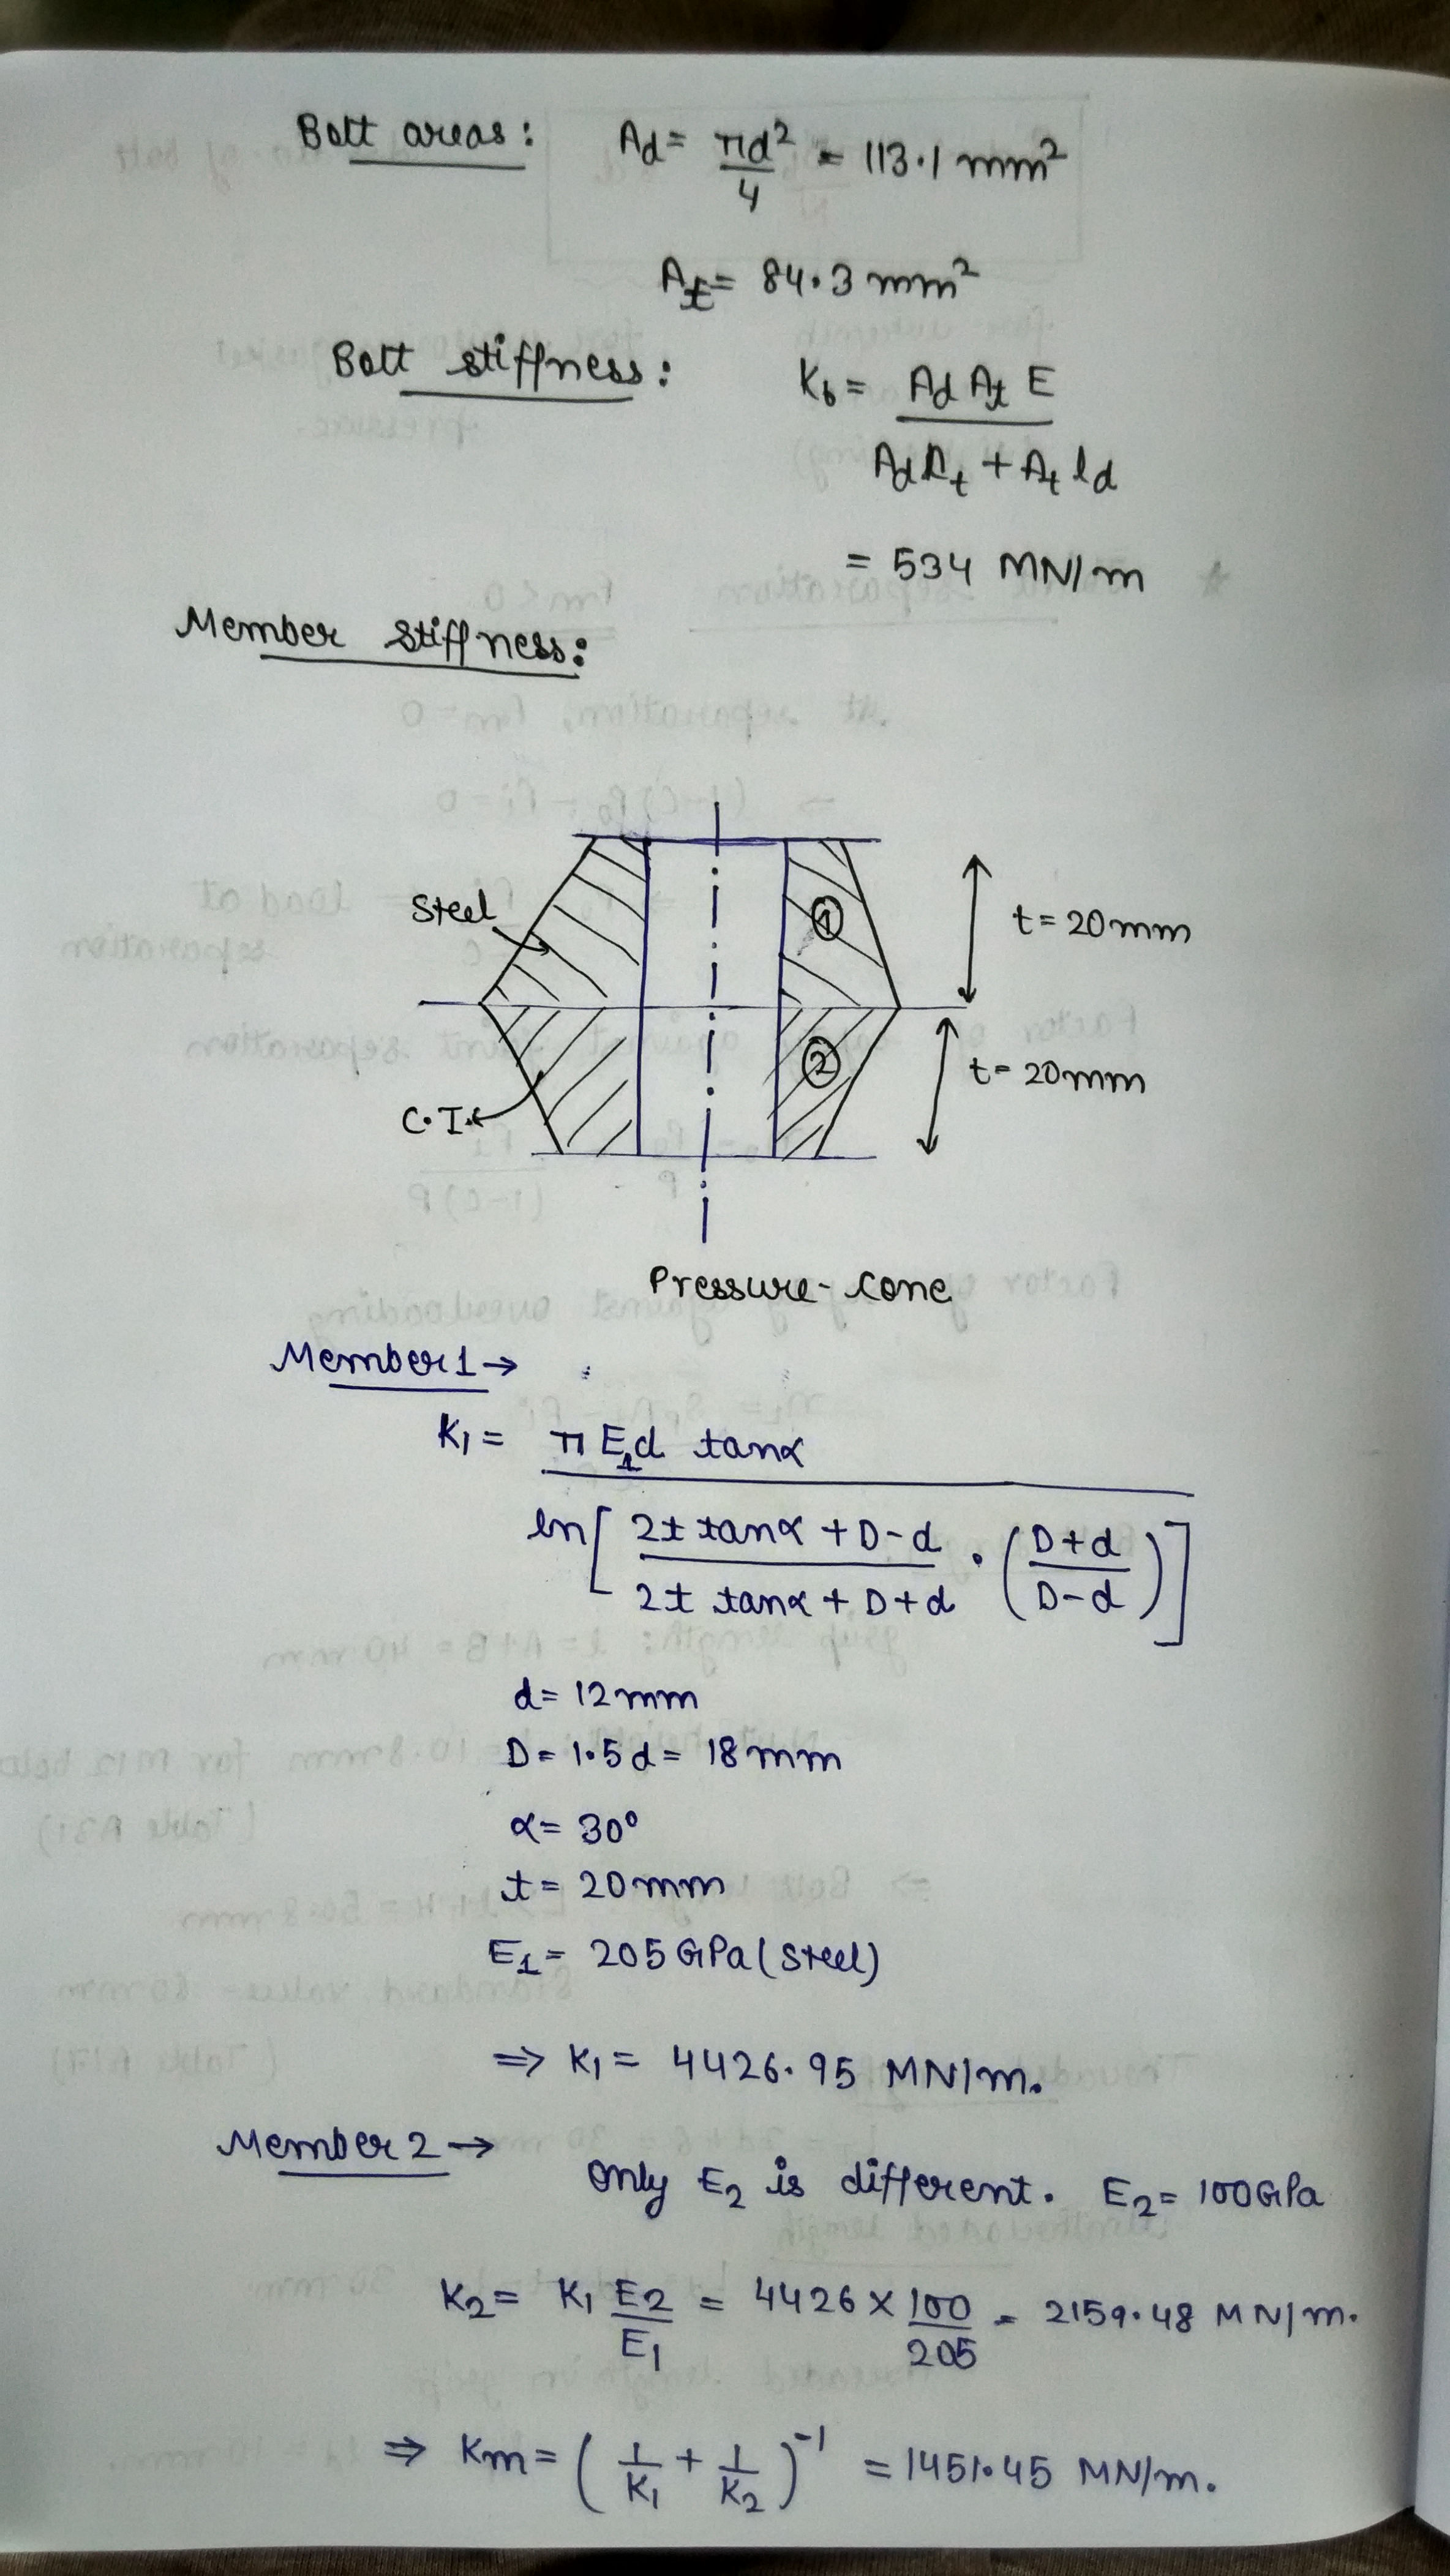 Bolt areas: Ad = πd²/4 = 113.1 mm²
At = 84.3 mm²
Bolt stiffness: Kb = Ad At E / Ad lt + At ld
= 534 MN/m
Member stiffness:
Steel
①
t = 20mm
②
t = 20mm
C.I.
Pressure-cone
Member 1 →
K₁ = π E₁d tanα / ln[ (2t tanα + D-d / 2t tanα + D+d) · (D+d / D-d) ]
d = 12mm
D = 1.5d = 18mm
α = 30°
t = 20mm
E₁ = 205 GPa (Steel)
⇒ K₁ = 4426.95 MN/m.
Member 2 →
only E₂ is different. E₂ = 100GPa
K₂ = K₁ E₂/E₁ = 4426 × 100/205 = 2159.48 MN/m.
⇒ Km = (1/K₁ + 1/K₂)⁻¹ = 1451.45 MN/m.